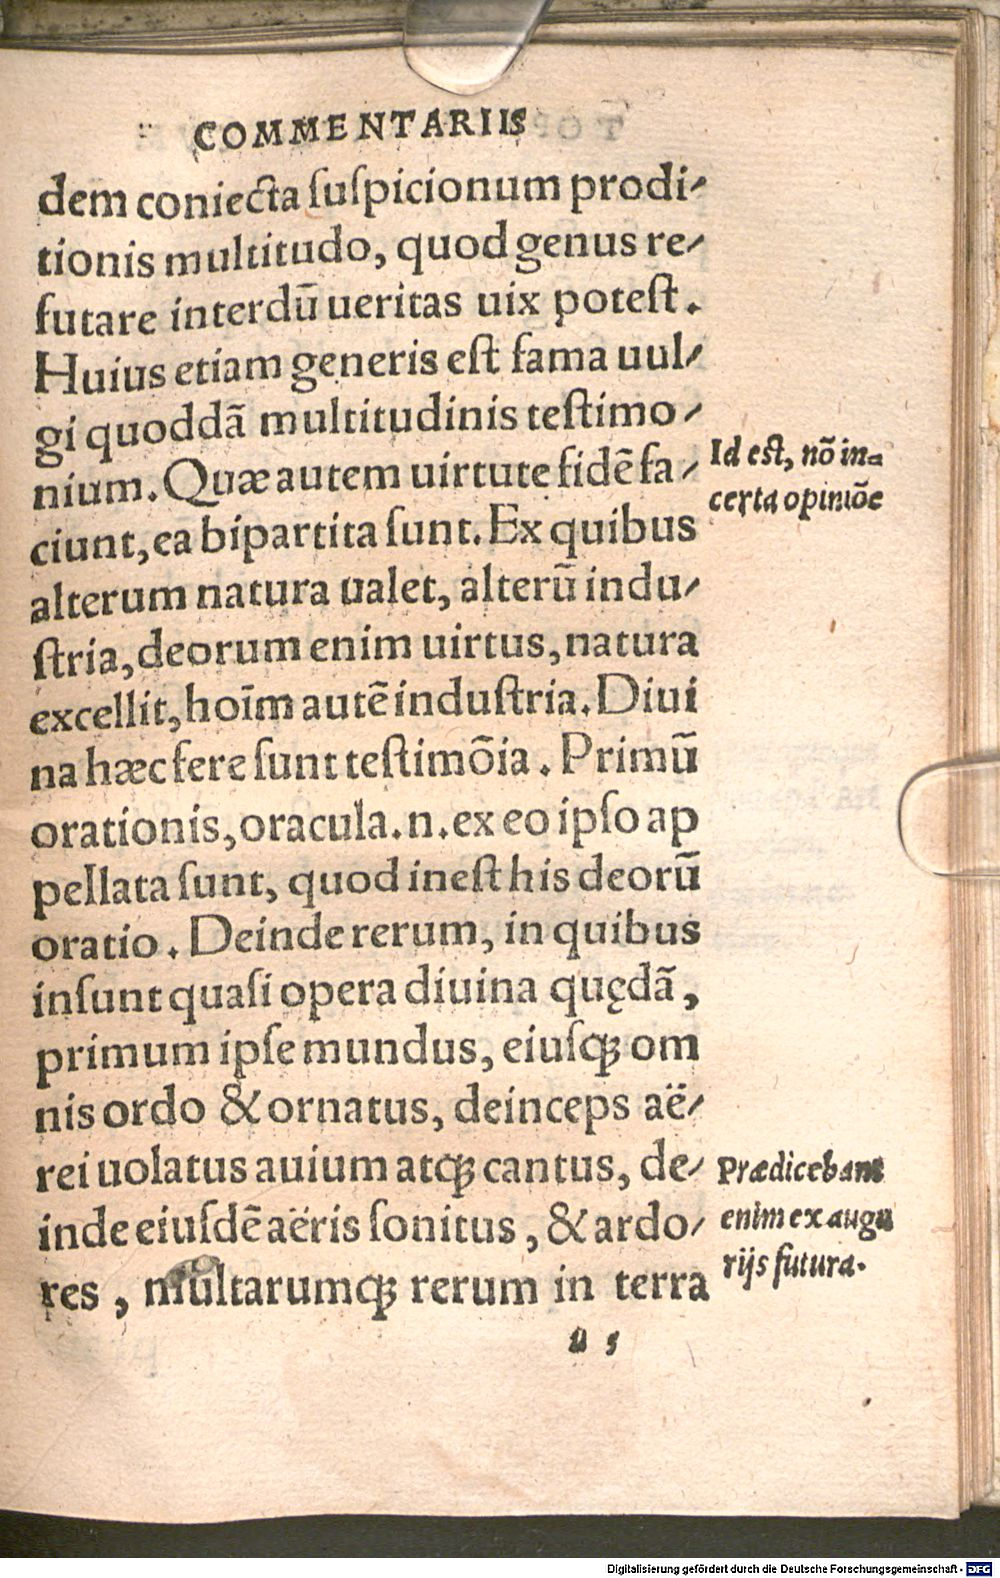 COMMENTARIIS
dem coniecta ſuſpicionum prodi-
tionis multitudo, quod genus re-
futare interdū ueritas uix poteſt.
Huius etiam generis eſt fama uul-
gi quoddā multitudinis teſtimo-
nium. Quæ autem uirtute fidē fa-
ciunt, ea bipartita ſunt. Ex quibus
alterum natura ualet, alterū indu-
ſtria, deorum enim uirtus, natura
excellit, hoīm autē induſtria. Diui
na hæc fere ſunt teſtimōia. Primū
orationis, oracula.n.ex eo ipſo ap
pellata ſunt, quod ineſt his deorū
oratio. Deinde rerum, in quibus
inſunt quaſi opera diuina quędā,
primum ipſe mundus, eiuſq; om
nis ordo & ornatus, deinceps aë-
rei uolatus auium atq; cantus, de-
inde eiuſdē aëris ſonitus, & ardo-
res, multarumq; rerum in terra
u 5
Id eſt, nō in-
certa opiniōe
Prædicebant
enim ex augu
rijs futura.
Digitalisierung gefördert durch die Deutsche Forschungsgemeinschaft - DFG